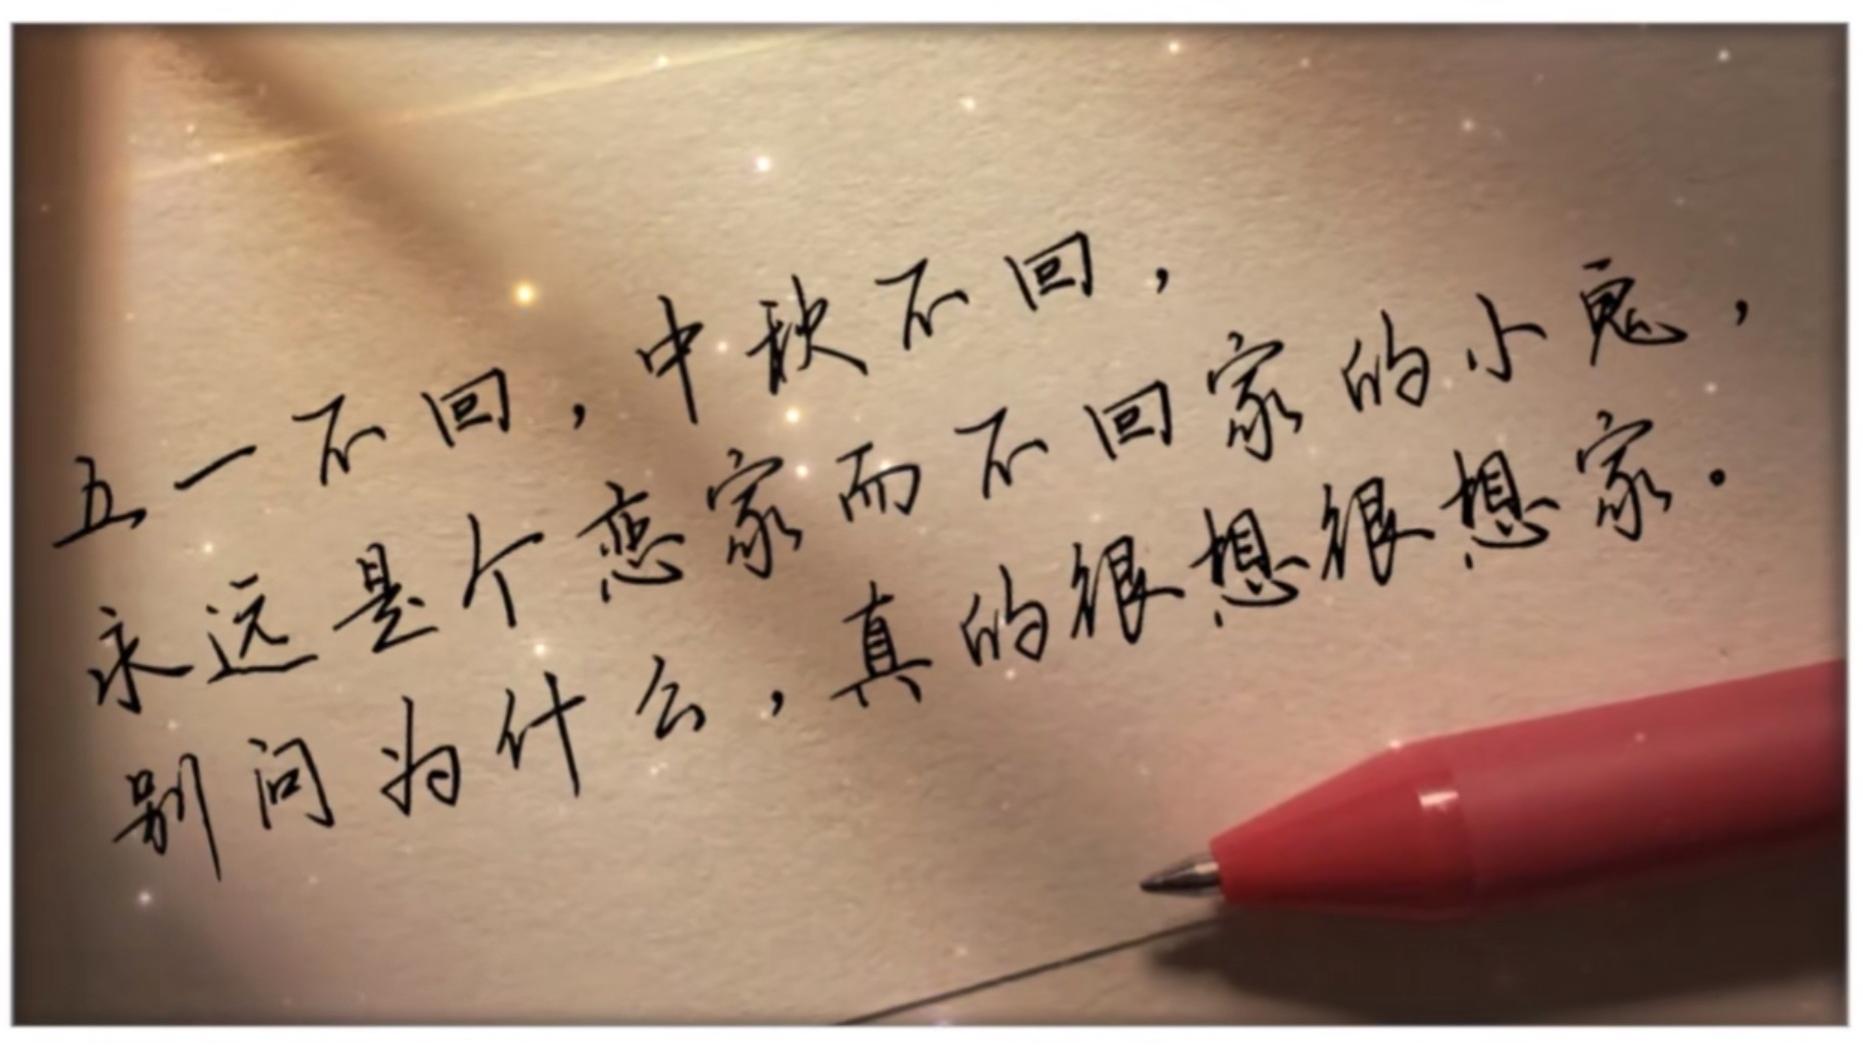 五一不回，中秋不回，
永远是个恋家而不回家的小鬼，
别问为什么，真的很想很想家。